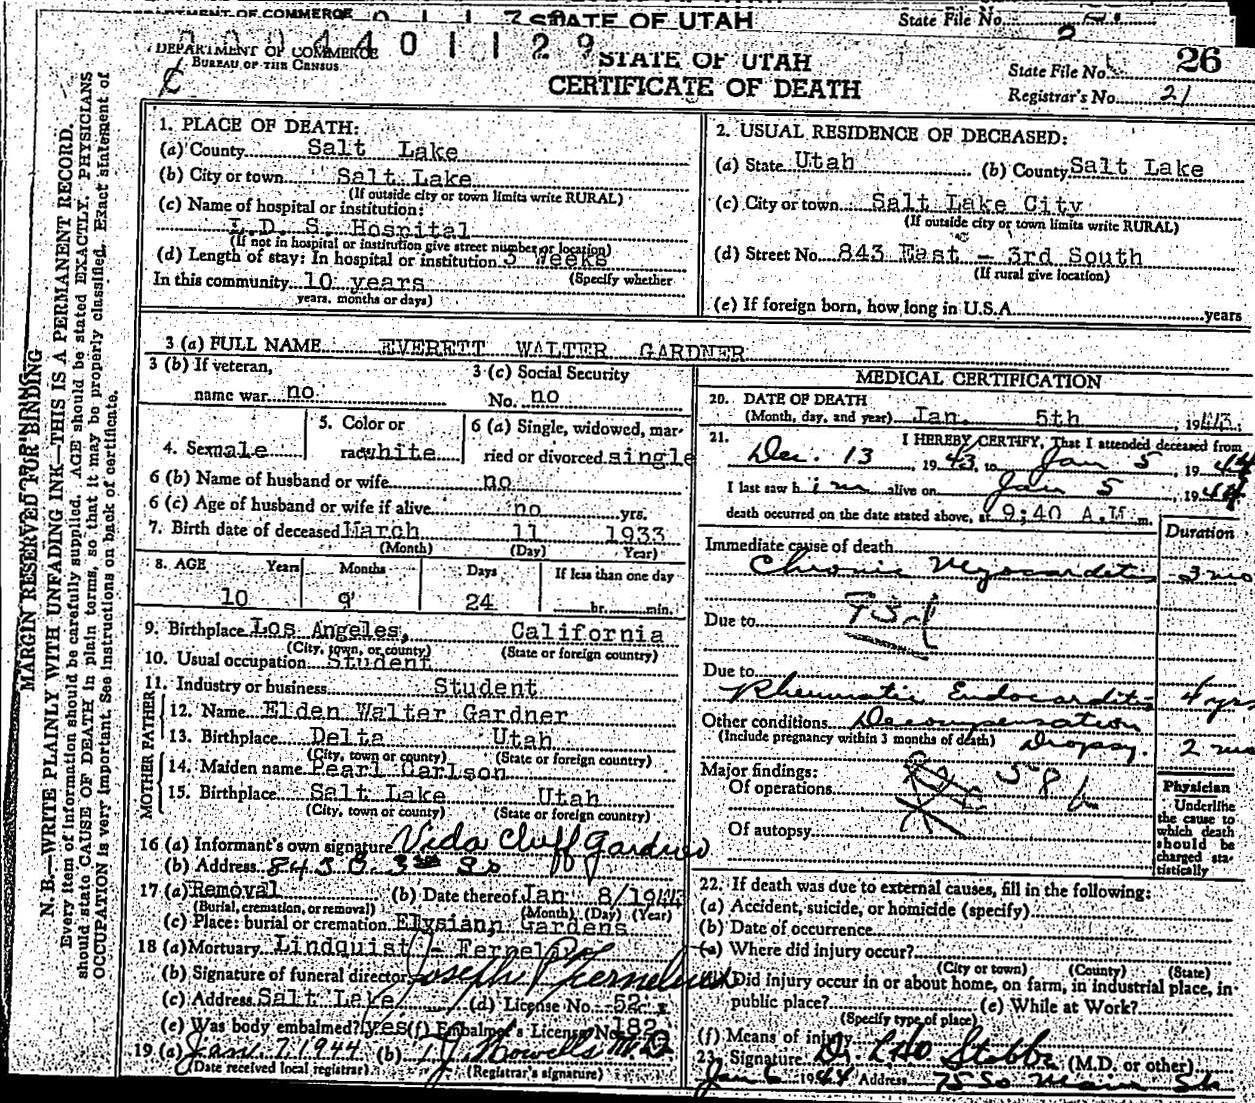 DEPARTMENT OF COMMERCE STATE OF UTAH State File No.
DEPARTMENT OF COMMERCE
BUREAU OF THE CENSUS
0 0 4 4 0 1 1 2 9
STATE OF UTAH
CERTIFICATE OF DEATH
State File No. 26
Registrar's No. 21
MARGIN RESERVED FOR BINDING
N. B.—WRITE PLAINLY WITH UNFADING INK—THIS IS A PERMANENT RECORD.
Every item of information should be carefully supplied. AGE should be stated EXACTLY. PHYSICIANS
should state CAUSE OF DEATH in plain terms, so that it may be properly classified. Exact statement of
OCCUPATION is very important. See instructions on back of certificate.
1. PLACE OF DEATH:
(a) County Salt Lake
(b) City or town Salt Lake
(If outside city or town limits write RURAL)
(c) Name of hospital or institution:
L.D. S. Hospital
(If not in hospital or institution give street number or location)
(d) Length of stay: In hospital or institution 3 weeks
In this community 10 years (Specify whether
years, months or days)
2. USUAL RESIDENCE OF DECEASED:
(a) State Utah (b) County Salt Lake
(c) City or town Salt Lake City
(If outside city or town limits write RURAL)
(d) Street No. 843 East - 3rd South
(If rural give location)
(e) If foreign born, how long in U.S.A. years
3 (a) FULL NAME EVERETT WALTER GARDNER
3 (b) If veteran,
name war no
3 (c) Social Security
No. no
4. Sex male
5. Color or
race white
6 (a) Single, widowed, mar-
ried or divorced single
6 (b) Name of husband or wife no
6 (c) Age of husband or wife if alive no yrs.
7. Birth date of deceased March 11 1933
(Month) (Day) Year)
8. AGE Years Months Days If less than one day
10 9 24 hr. min.
9. Birthplace Los Angeles, California
(City, town, or county) (State or foreign country)
10. Usual occupation Student
11. Industry or business Student
FATHER
12. Name Elden Walter Gardner
13. Birthplace Delta Utah
(City, town or county) (State or foreign country)
MOTHER
14. Maiden name Pearl Carlson
15. Birthplace Salt Lake Utah
(City, town of county) (State or foreign country)
16 (a) Informant's own signature Veda Cluff Gardner
(b) Address 843 E. 3rd So
17 (a) Removal (b) Date thereof Jan 8/1944
(Burial, cremation, or removal) (Month) (Day) (Year)
(c) Place: burial or cremation Elysiann Gardens
18 (a) Mortuary Lindquist - Fernelius
(b) Signature of funeral director Joseph P Fernelius
(c) Address Salt Lake (d) License No. 52
(e) Was body embalmed? yes (f) Embalmer's License No. 182
19 (a) Jan. 7, 1944 (b) T J Howells M.D
(Date received local registrar) (Registrar's signature)
MEDICAL CERTIFICATION
20. DATE OF DEATH
(Month, day, and year) Jan. 5th, 1944
21. I HEREBY CERTIFY, That I attended deceased from
Dec. 13, 1943, to Jan 5, 1944
I last saw him alive on Jan 5, 1944
death occurred on the date stated above, at 9:40 A.M. m.
Duration
Immediate cause of death
Chronic Myocarditis 3 mo
Due to 93-d
Due to
Rheumatic Endocarditis 4 yrs
Other conditions Decompensation
(Include pregnancy within 3 months of death) Dropsy. 2 mo
Major findings:
Of operations 58 b
Of autopsy
Physician
Underline
the cause to
which death
should be
charged sta-
tistically
22. If death was due to external causes, fill in the following:
(a) Accident, suicide, or homicide (specify)
(b) Date of occurrence
(c) Where did injury occur?
(City or town) (County) (State)
(d) Did injury occur in or about home, on farm, in industrial place, in
public place? (e) While at Work?
(Specify type of place)
(f) Means of injury
23. Signature Dr. Stobbe (M.D. or other)
Jan 6 1944 Address 75 So Main St